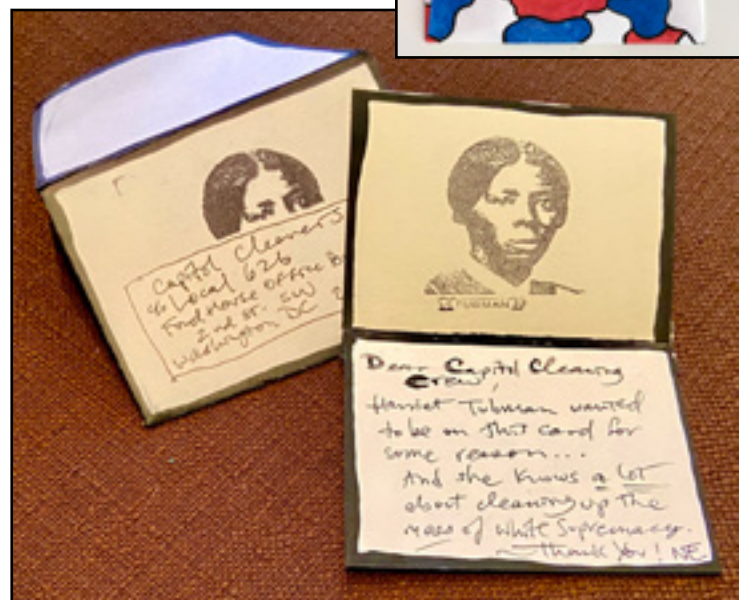 Capitol Cleaners
c/o Local 626
Ford House Office B
2nd St. SW
Washington, DC 2
TUBMAN
Dear Capitol Cleaning
Crew,
Harriet Tubman wanted
to be on this card for
some reason...
And she knows a lot
about cleaning up the
mess of white supremacy.
—Thank you! NE